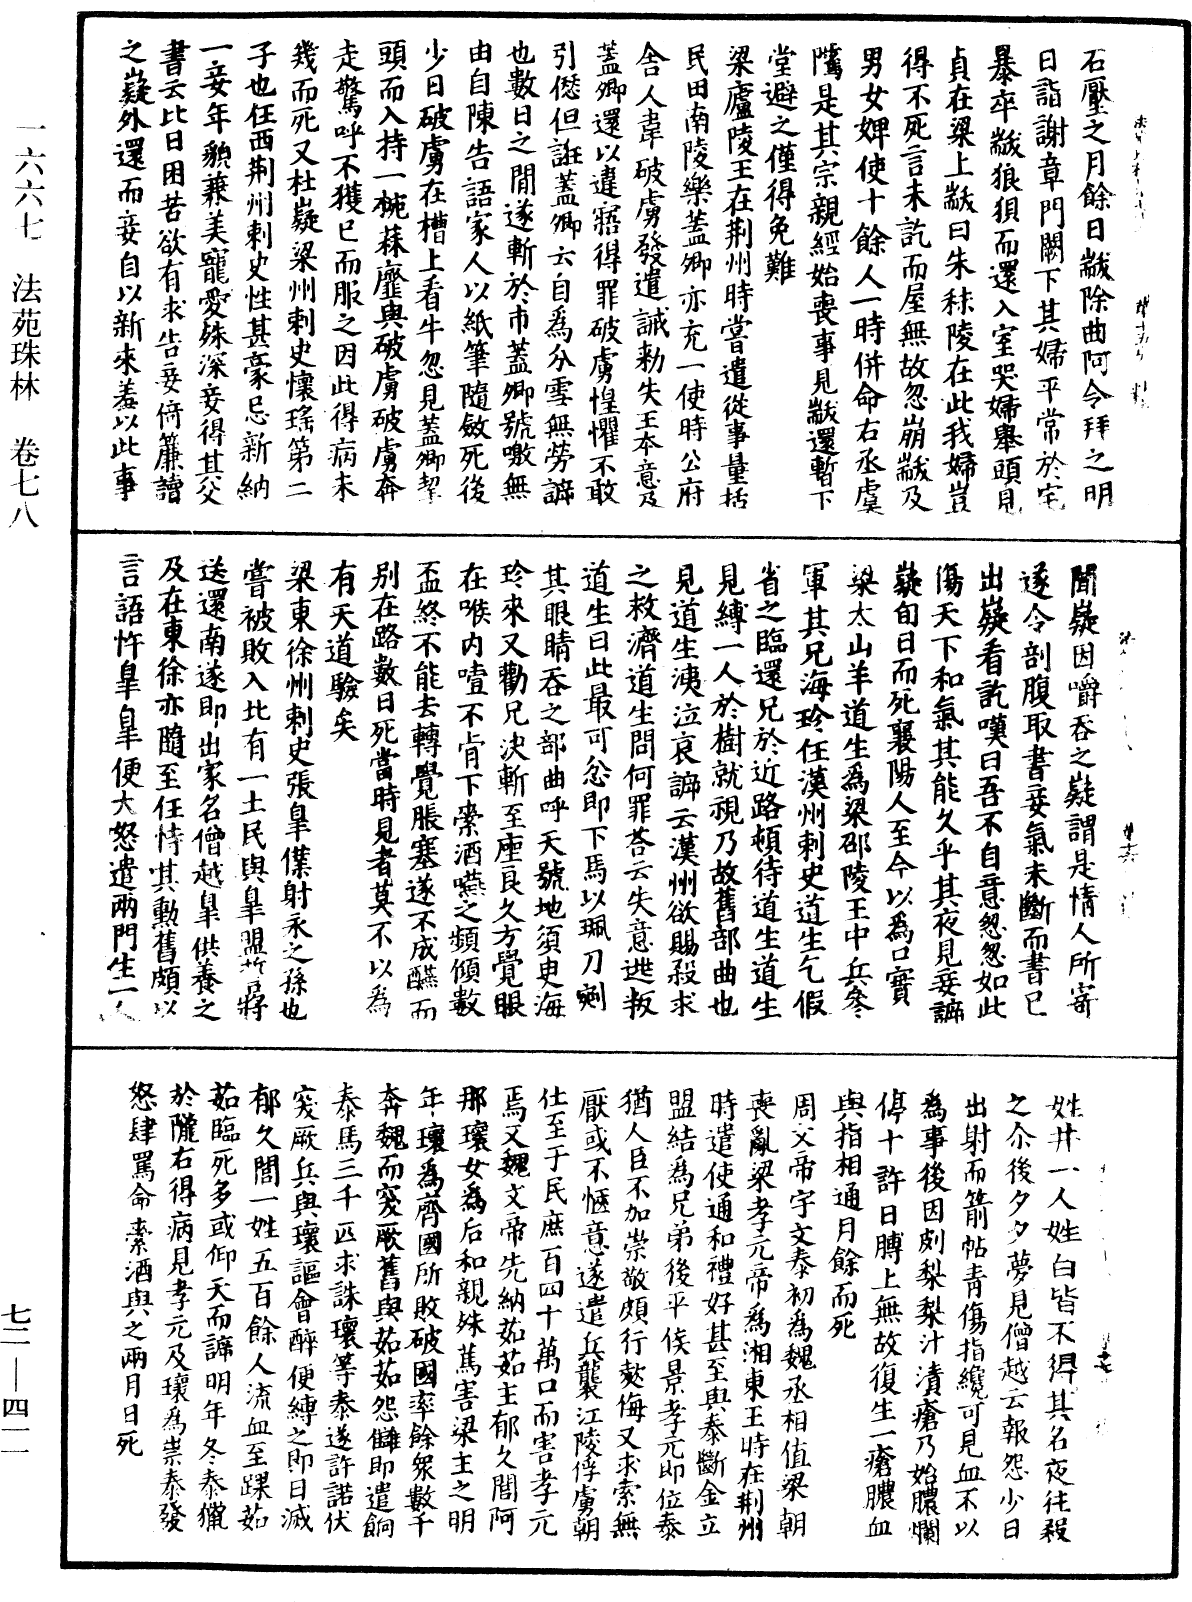 石壓之月餘日黻除曲阿令拜之明
日詣謝章門闕下其婦平常於宅
暴卒黻狼狽而還入室哭婦舉頭見
貞在梁上黻曰朱秣陵在此我婦豈
得不死言未訖而屋無故忽崩黻及
男女婢使十餘人一時併命右丞虞
騭是其宗親經始喪事見黻還暫下
堂避之僅得免難
梁廬陵王在荆州時嘗遣從事量括
民田南陵樂蓋卿亦充一使時公府
舍人韋破虜發遣誡勑失王本意及
蓋卿還以違寤得罪破虜惶懼不敢
引愆但誑蓋卿云自爲分雪無勞諦
也數日之間遂斬於市蓋卿號噭無
由自陳告語家人以紙筆隨斂死後
少日破虜在槽上看牛忽見蓋卿挈
頭而入持一椀蒜虀與破虜破虜奔
走驚呼不獲已而服之因此得病未
幾而死又杜嶷梁州刺史懷瑤第二
子也任西荆州刺史性甚豪忌新納
一妾年貌兼美寵愛殊深妾得其父
書云比日困苦欲有求告妾倚簾讀
之嶷外還而妾自以新來羞以此事
聞嶷因嚼吞之嶷謂是情人所寄
遂令剖腹取書妾氣未斷而書已
出嶷看訖嘆曰吾不自意怱怱如此
傷天下和氣其能久乎其夜見妾諦
嶷旬日而死襄陽人至今以爲口實
梁太山羊道生爲梁邵陵王中兵參
軍其兄海珍任漢州刺史道生乞假
省之臨還兄於近路頓待道生道生
見縛一人於樹就視乃故舊部曲也
見道生洟泣哀諦云漢州欲賜殺求
之救濟道生問何罪荅云失意逃叛
道生曰此最可忿即下馬以珮刀剜
其眼睛吞之部曲呼天號地須臾海
珍來又勸兄決斬至座良久方覺眼
在喉內噎不肯下索酒嚥之頻傾數
盃終不能去轉覺脹塞遂不成醼而
别在路數日死當時見者莫不以爲
有天道驗矣
梁東徐州刺史張臯僕射永之孫也
嘗被敗入北有一土民與臯盟誓將
送還南遂即出家名僧越臯供養之
及在東徐亦隨至任恃其勳舊頗以
言語忤臯臯便大怒遣兩門生一人
姓井一人姓白皆不得其名夜往殺
之尒後夕夕夢見僧越云報怨少日
出射而箭帖青傷指纔可見血不以
爲事後因剠梨梨汁漬瘡乃始膿爛
停十許日膊上無故復生一瘡膿血
與指相通月餘而死
周文帝宇文泰初爲魏丞相值梁朝
喪亂梁孝元帝爲湘東王時在荆州
時遣使通和禮好甚至與泰斷金立
盟結爲兄弟後平侯景孝元即位泰
猶人臣不加崇敬頗行𢿙侮又求索無
厭或不愜意遂遣兵襲江陵俘虜朝
仕至于民庶百四十萬口而害孝元
焉又魏文帝先納茹茹主郁久閭阿
那瓌女爲后和親殊篤害梁主之明
年瓌爲齊國所敗破國率餘衆數千
奔魏而突厥舊與茹茹怨讎即遣餉
泰馬三千匹求誅瓌等泰遂許諾伏
突厥兵與瓌謳會醉便縛之即日滅
郁久閭一姓五百餘人流血至踝茹
茹臨死多或仰天而諦明年冬泰獵
於隴右得病見孝元及瓌爲祟泰發
怒肆罵命索酒與之兩月日死
一六六七　法苑珠林　卷七八
七二—四一一